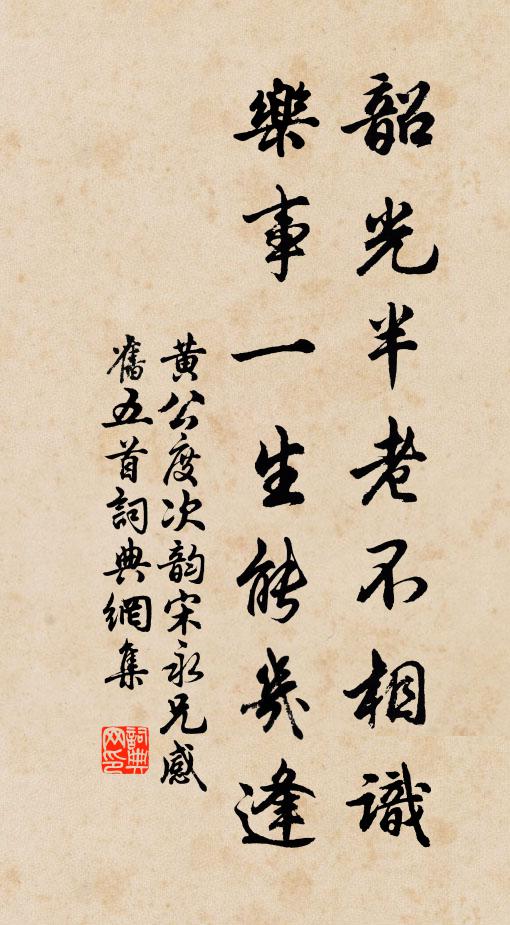 韶光半老不相識
樂事一生能幾逢
黃公度次韵宋永兄感
舊五首詞典網集
詞典网印